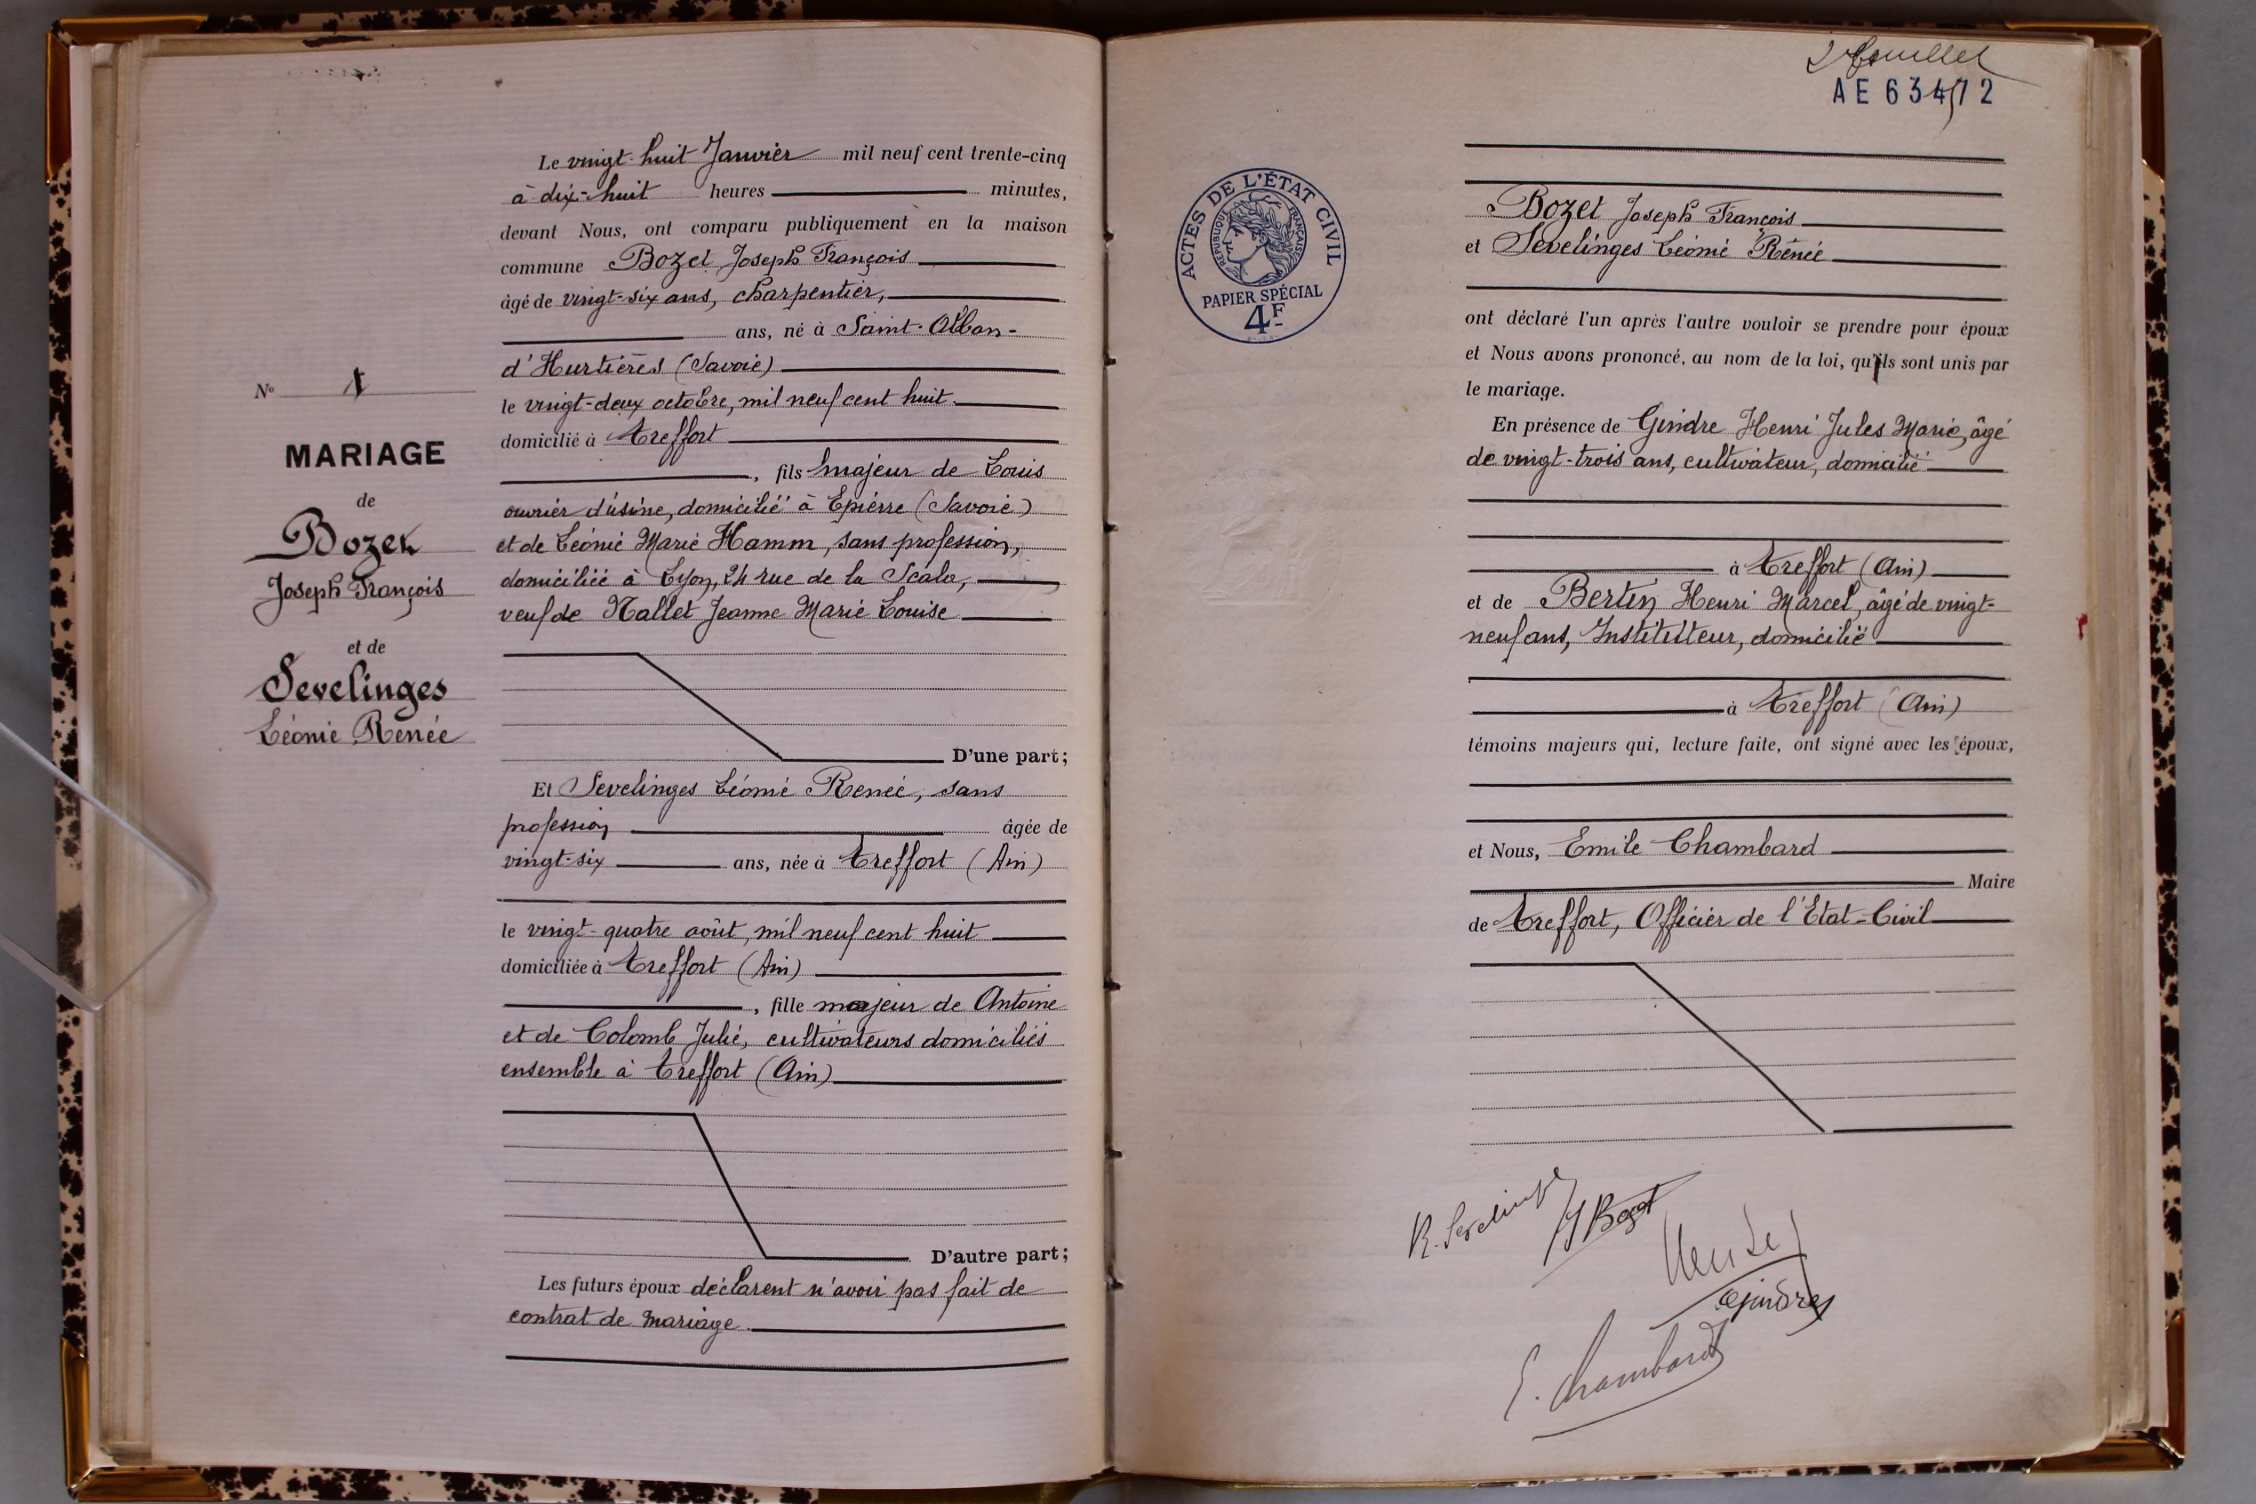 Le vingt-huit Janvier mil neuf cent trente-cinq
à dix-huit heures minutes,
devant Nous, ont comparu publiquement en la maison
commune Bozet Joseph François
âgé de vingt-six ans, charpentier,
ans, né à Saint-Alban-
d'Hurtières (Savoie)
le vingt-deux octobre, mil neuf cent huit
domicilié à Treffort
, fils majeur de Louis
ouvrier d'usine, domicilié à Epierre (Savoie)
et de Léonie Marie Hamm, sans profession,
domiciliée à Lyon, 24 rue de la Scala,
veuf de Nallet Jeanne Marie Louise
D'une part;
Et Sevelinges Léonie Renée, sans
profession âgée de
vingt-six ans, née à Treffort (Ain)
le vingt-quatre août, mil neuf cent huit
domiciliée à Treffort (Ain)
, fille majeur de Antoine
et de Colomb Julie, cultivateurs domiciliés
ensemble à Treffort (Ain)
D'autre part;
Les futurs époux déclarent n'avoir pas fait de
contrat de mariage.
No 1
MARIAGE
de
Bozet
Joseph François
et de
Sevelinges
Léonie Renée
2 feuillet
AE 63472
ACTES DE L'ÉTAT CIVIL
RÉPUBLIQUE FRANÇAISE
PAPIER SPÉCIAL
4F
Bozet Joseph François
et Sevelinges Léonie Renée
ont déclaré l'un après l'autre vouloir se prendre pour époux
et Nous avons prononcé, au nom de la loi, qu'ils sont unis par
le mariage.
En présence de Gindre Henri Jules Marie, âgé
de vingt-trois ans, cultivateur, domicilié
à Treffort (Ain)
et de Bertin Henri Marcel, âgé de vingt-
neuf ans, Instituteur, domicilié
à Treffort (Ain)
témoins majeurs qui, lecture faite, ont signé avec les époux,
et Nous, Emile Chambard
Maire
de Treffort, Officier de l'Etat-Civil
R. Sevelinges
J Bozet
Gindre
E. Chambard